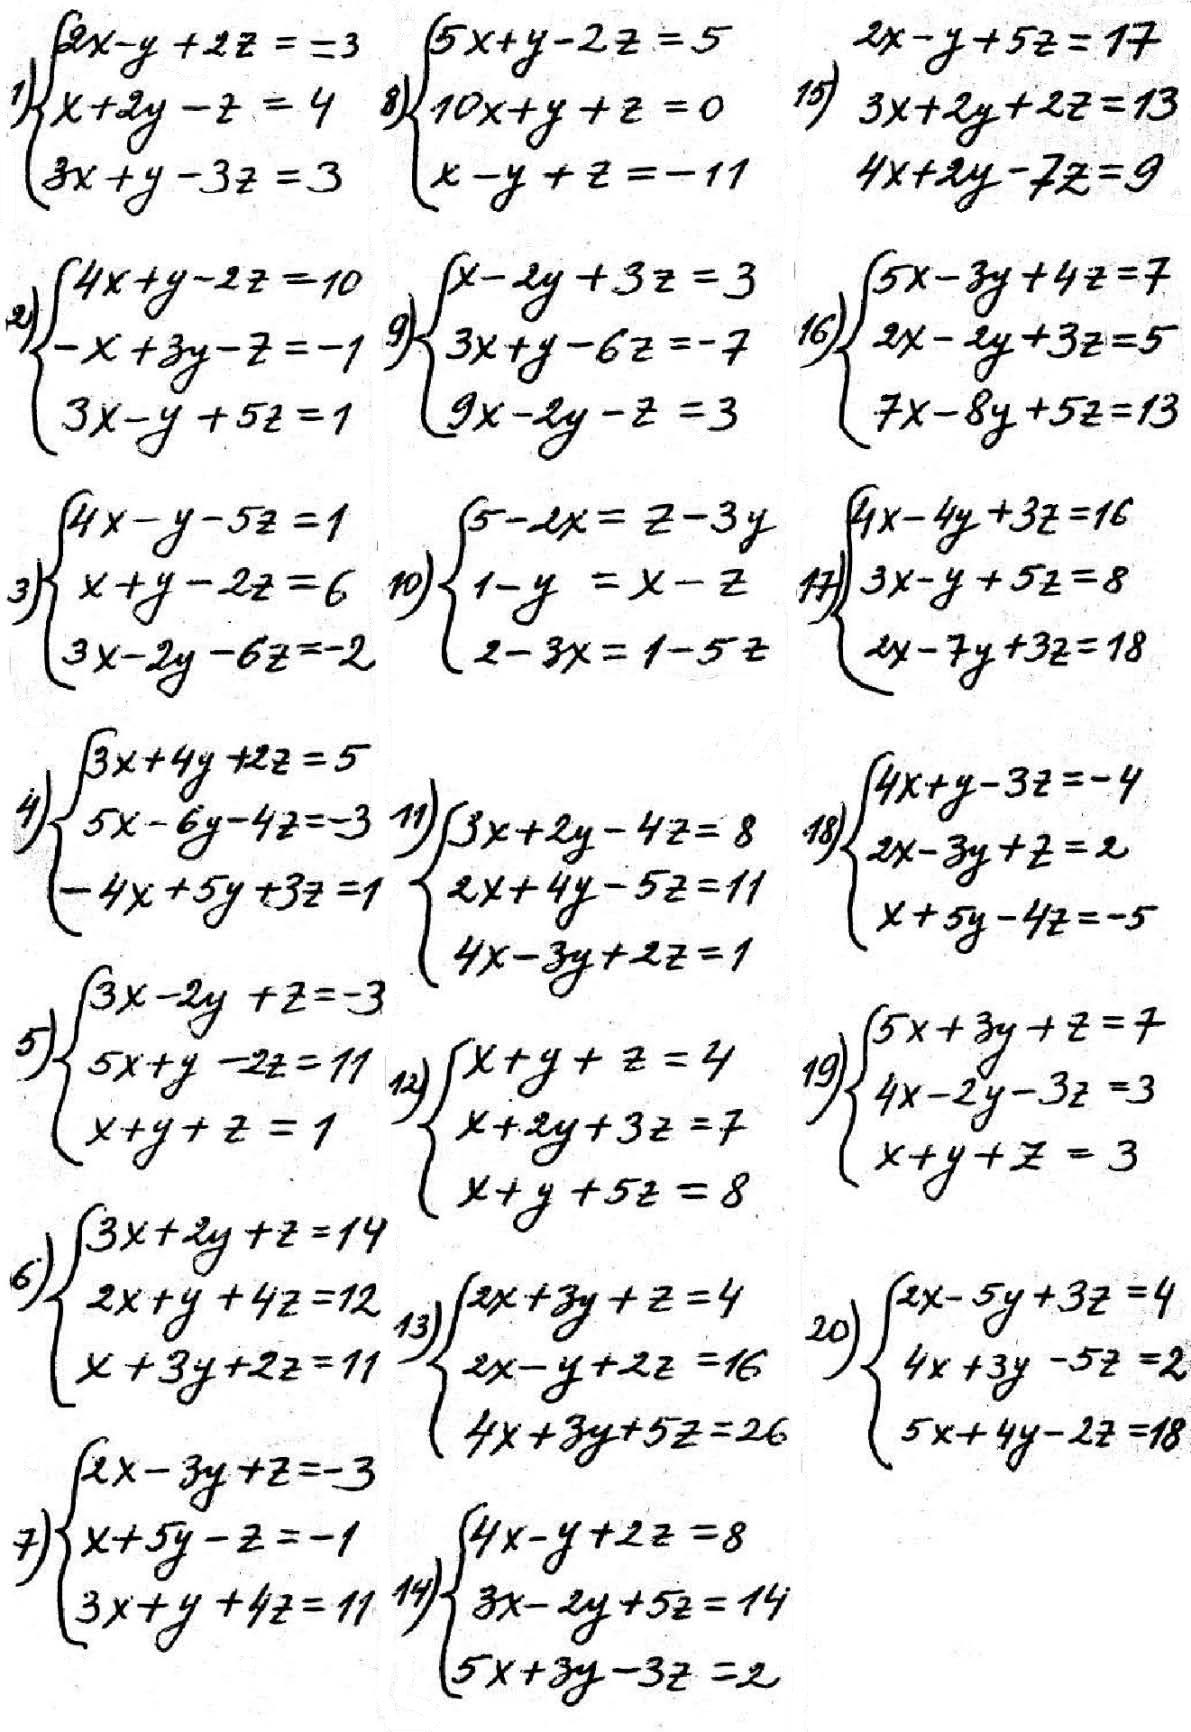 1) 2x-y+2z=-3
x+2y-z=4
3x+y-3z=3
2) 4x+y-2z=10
-x+3y-z=-1
3x-y+5z=1
3) 4x-y-5z=1
x+y-2z=6
3x-2y-6z=-2
4) 3x+4y+2z=5
5x-6y-4z=-3
-4x+5y+3z=1
5) 3x-2y+z=-3
5x+y-2z=11
x+y+z=1
6) 3x+2y+z=14
2x+y+4z=12
x+3y+2z=11
7) 2x-3y+z=-3
x+5y-z=-1
3x+y+4z=11
8) 5x+y-2z=5
10x+y+z=0
x-y+z=-11
9) x-2y+3z=3
3x+y-6z=-7
9x-2y-z=3
10) 5-2x=z-3y
1-y=x-z
2-3x=1-5z
11) 3x+2y-4z=8
2x+4y-5z=11
4x-3y+2z=1
12) x+y+z=4
x+2y+3z=7
x+y+5z=8
13) 2x+3y+z=4
2x-y+2z=16
4x+3y+5z=26
14) 4x-y+2z=8
3x-2y+5z=14
5x+3y-3z=2
15) 2x-y+5z=17
3x+2y+2z=13
4x+2y-7z=9
16) 5x-3y+4z=7
2x-2y+3z=5
7x-8y+5z=13
17) 4x-4y+3z=16
3x-y+5z=8
2x-7y+3z=18
18) 4x+y-3z=-4
2x-3y+z=2
x+5y-4z=-5
19) 5x+3y+z=7
4x-2y-3z=3
x+y+z=3
20) 2x-5y+3z=4
4x+3y-5z=2
5x+4y-2z=18